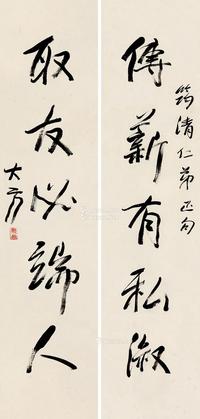 筠清仁弟正句
傳薪有私淑
取友必端人
大方